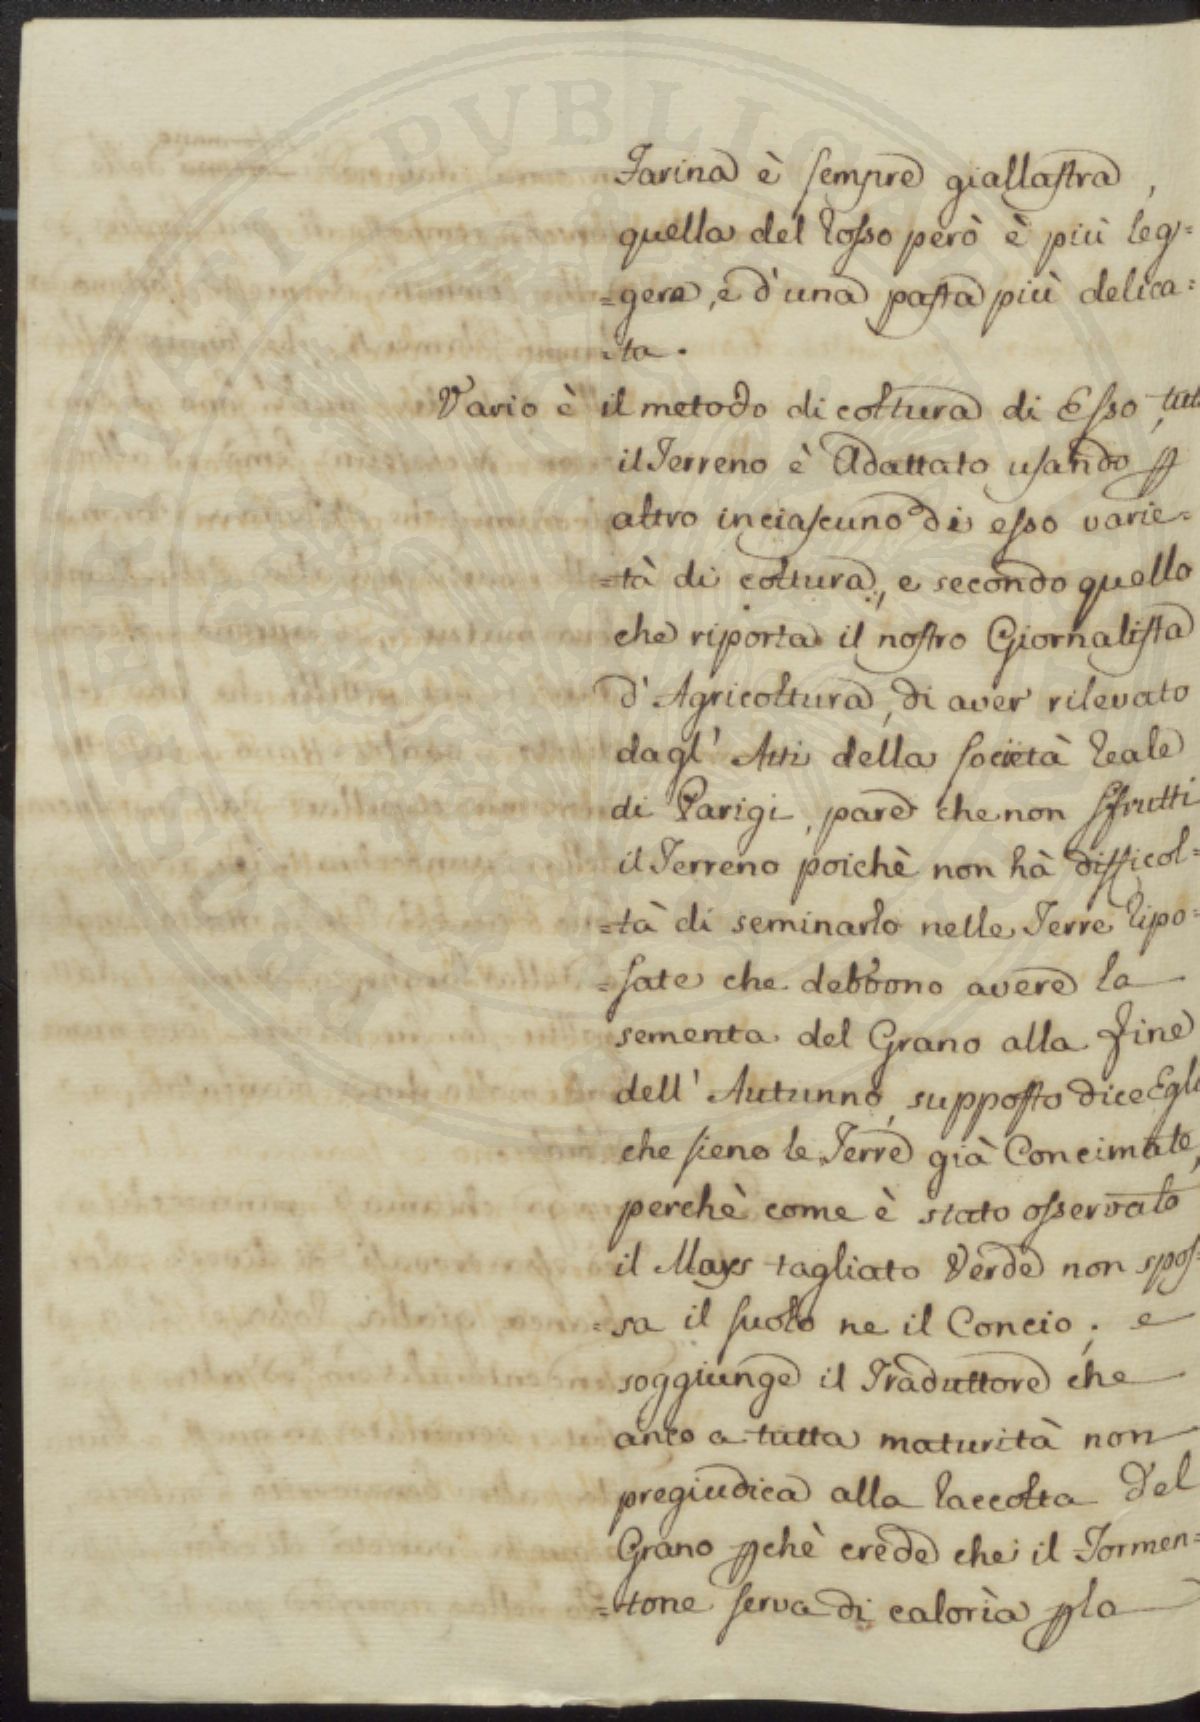 Farina è sempre giallastra,
quella del Rosso però è più leg=
=gera, e d'una pasta più delica=
=ta.
Vario è il metodo di coltura di Esso, tutt
il Terreno è Adattato usando p
altro in ciascuno di esso varie=
=tà di coltura, e secondo quello
che riporta il nostro Giornalista
d'Agricoltura, di aver rilevato
dagl' Atti della Società Reale
di Parigi, pare che non sfrutti
il Terreno poichè non hà difficol=
=tà di seminarlo nelle Terre Ripo=
=sate che debbono avere la
sementa del Grano alla fine
dell' Autunno, supposto dice Egli
che sieno le Terre già Concimate,
perchè come è stato osservato
il Mays tagliato Verde non spos=
=sa il suolo ne il Concio; e
soggiunge il Traduttore che
anco a tutta maturità non
pregiudica alla Raccolta del
Grano pchè crede che il Formen=
=tone serva di calorìa p la